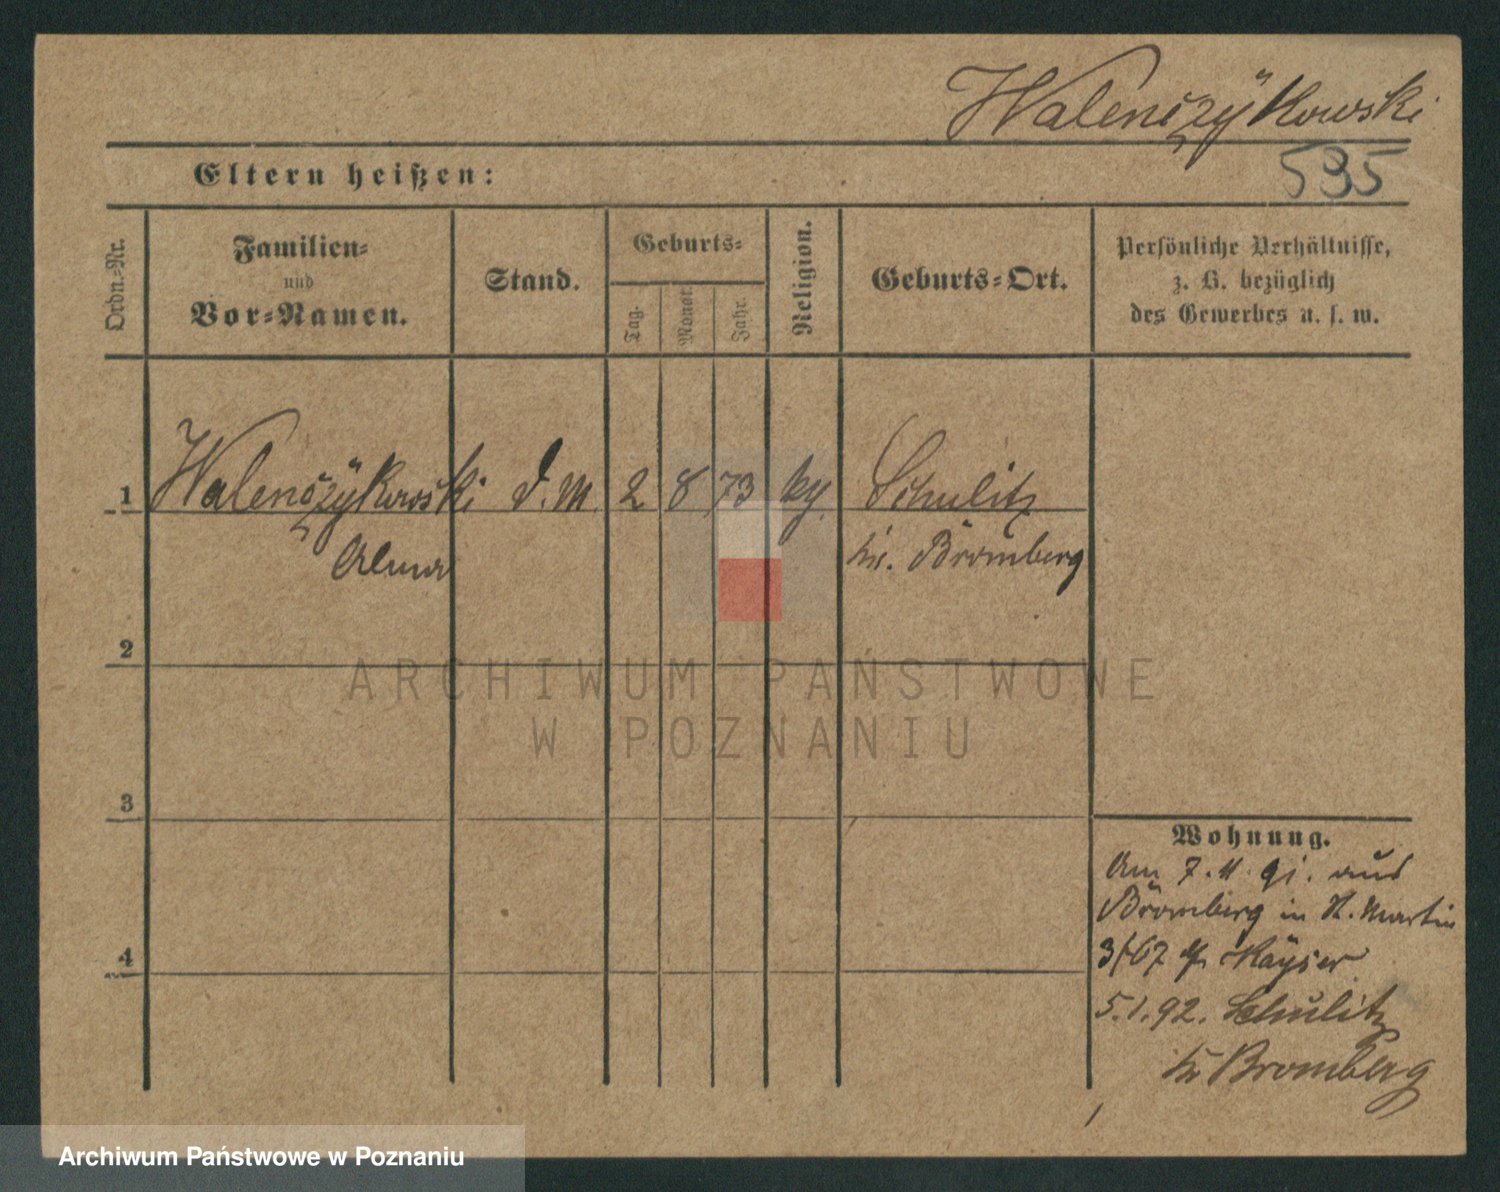 Walenczykowski
Eltern heißen:
535
Ordn.-Nr.
Familien-
und
Vor-Namen.
Stand.
Geburts-
Tag.
Monat.
Jahr.
Religion.
Geburts-Ort.
Persönliche Verhältnisse,
z. B. bezüglich
des Gewerbes u. s. w.
1 Walenczykowski d. M. 2 8 73 Schulitz
Alma Kr. Bromberg
2
3
4
Wohnung.
Am 7. 11. 91. aus
Bromberg in St. Martin
3/67 Kayser
5.1.92. Schulitz
Kr Bromberg
ARCHIWUM PAŃSTWOWE
W POZNANIU
Archiwum Państwowe w Poznaniu